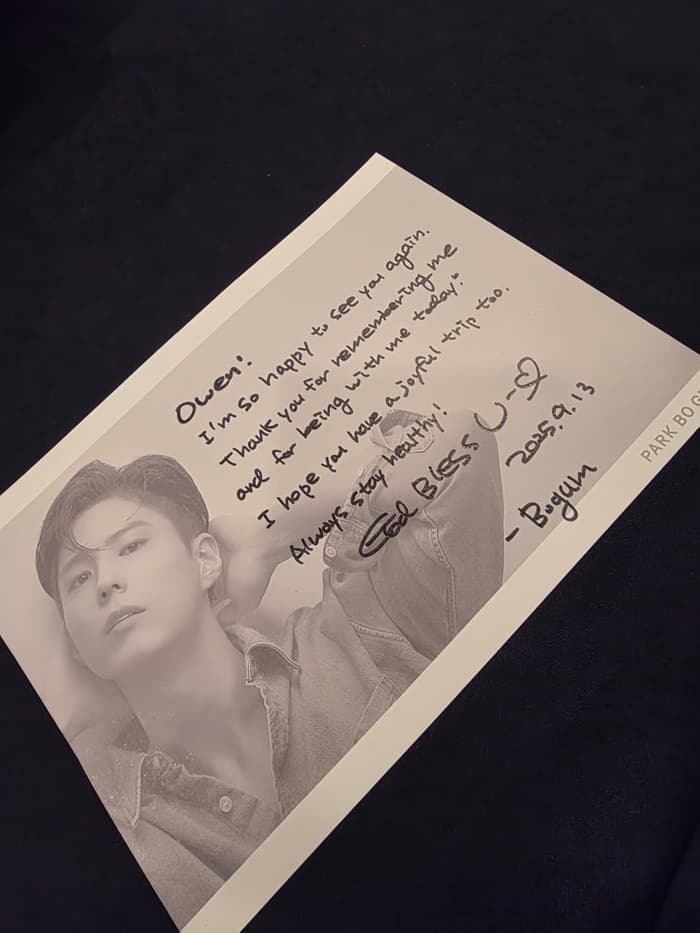 Owen!
I'm so happy to see you again.
Thank you for remembering me
and for being with me today.
I hope you have a joyful trip too.
Always stay healthy!
God BLESS U
2025.9.13
- Bogum
PARK BO GU